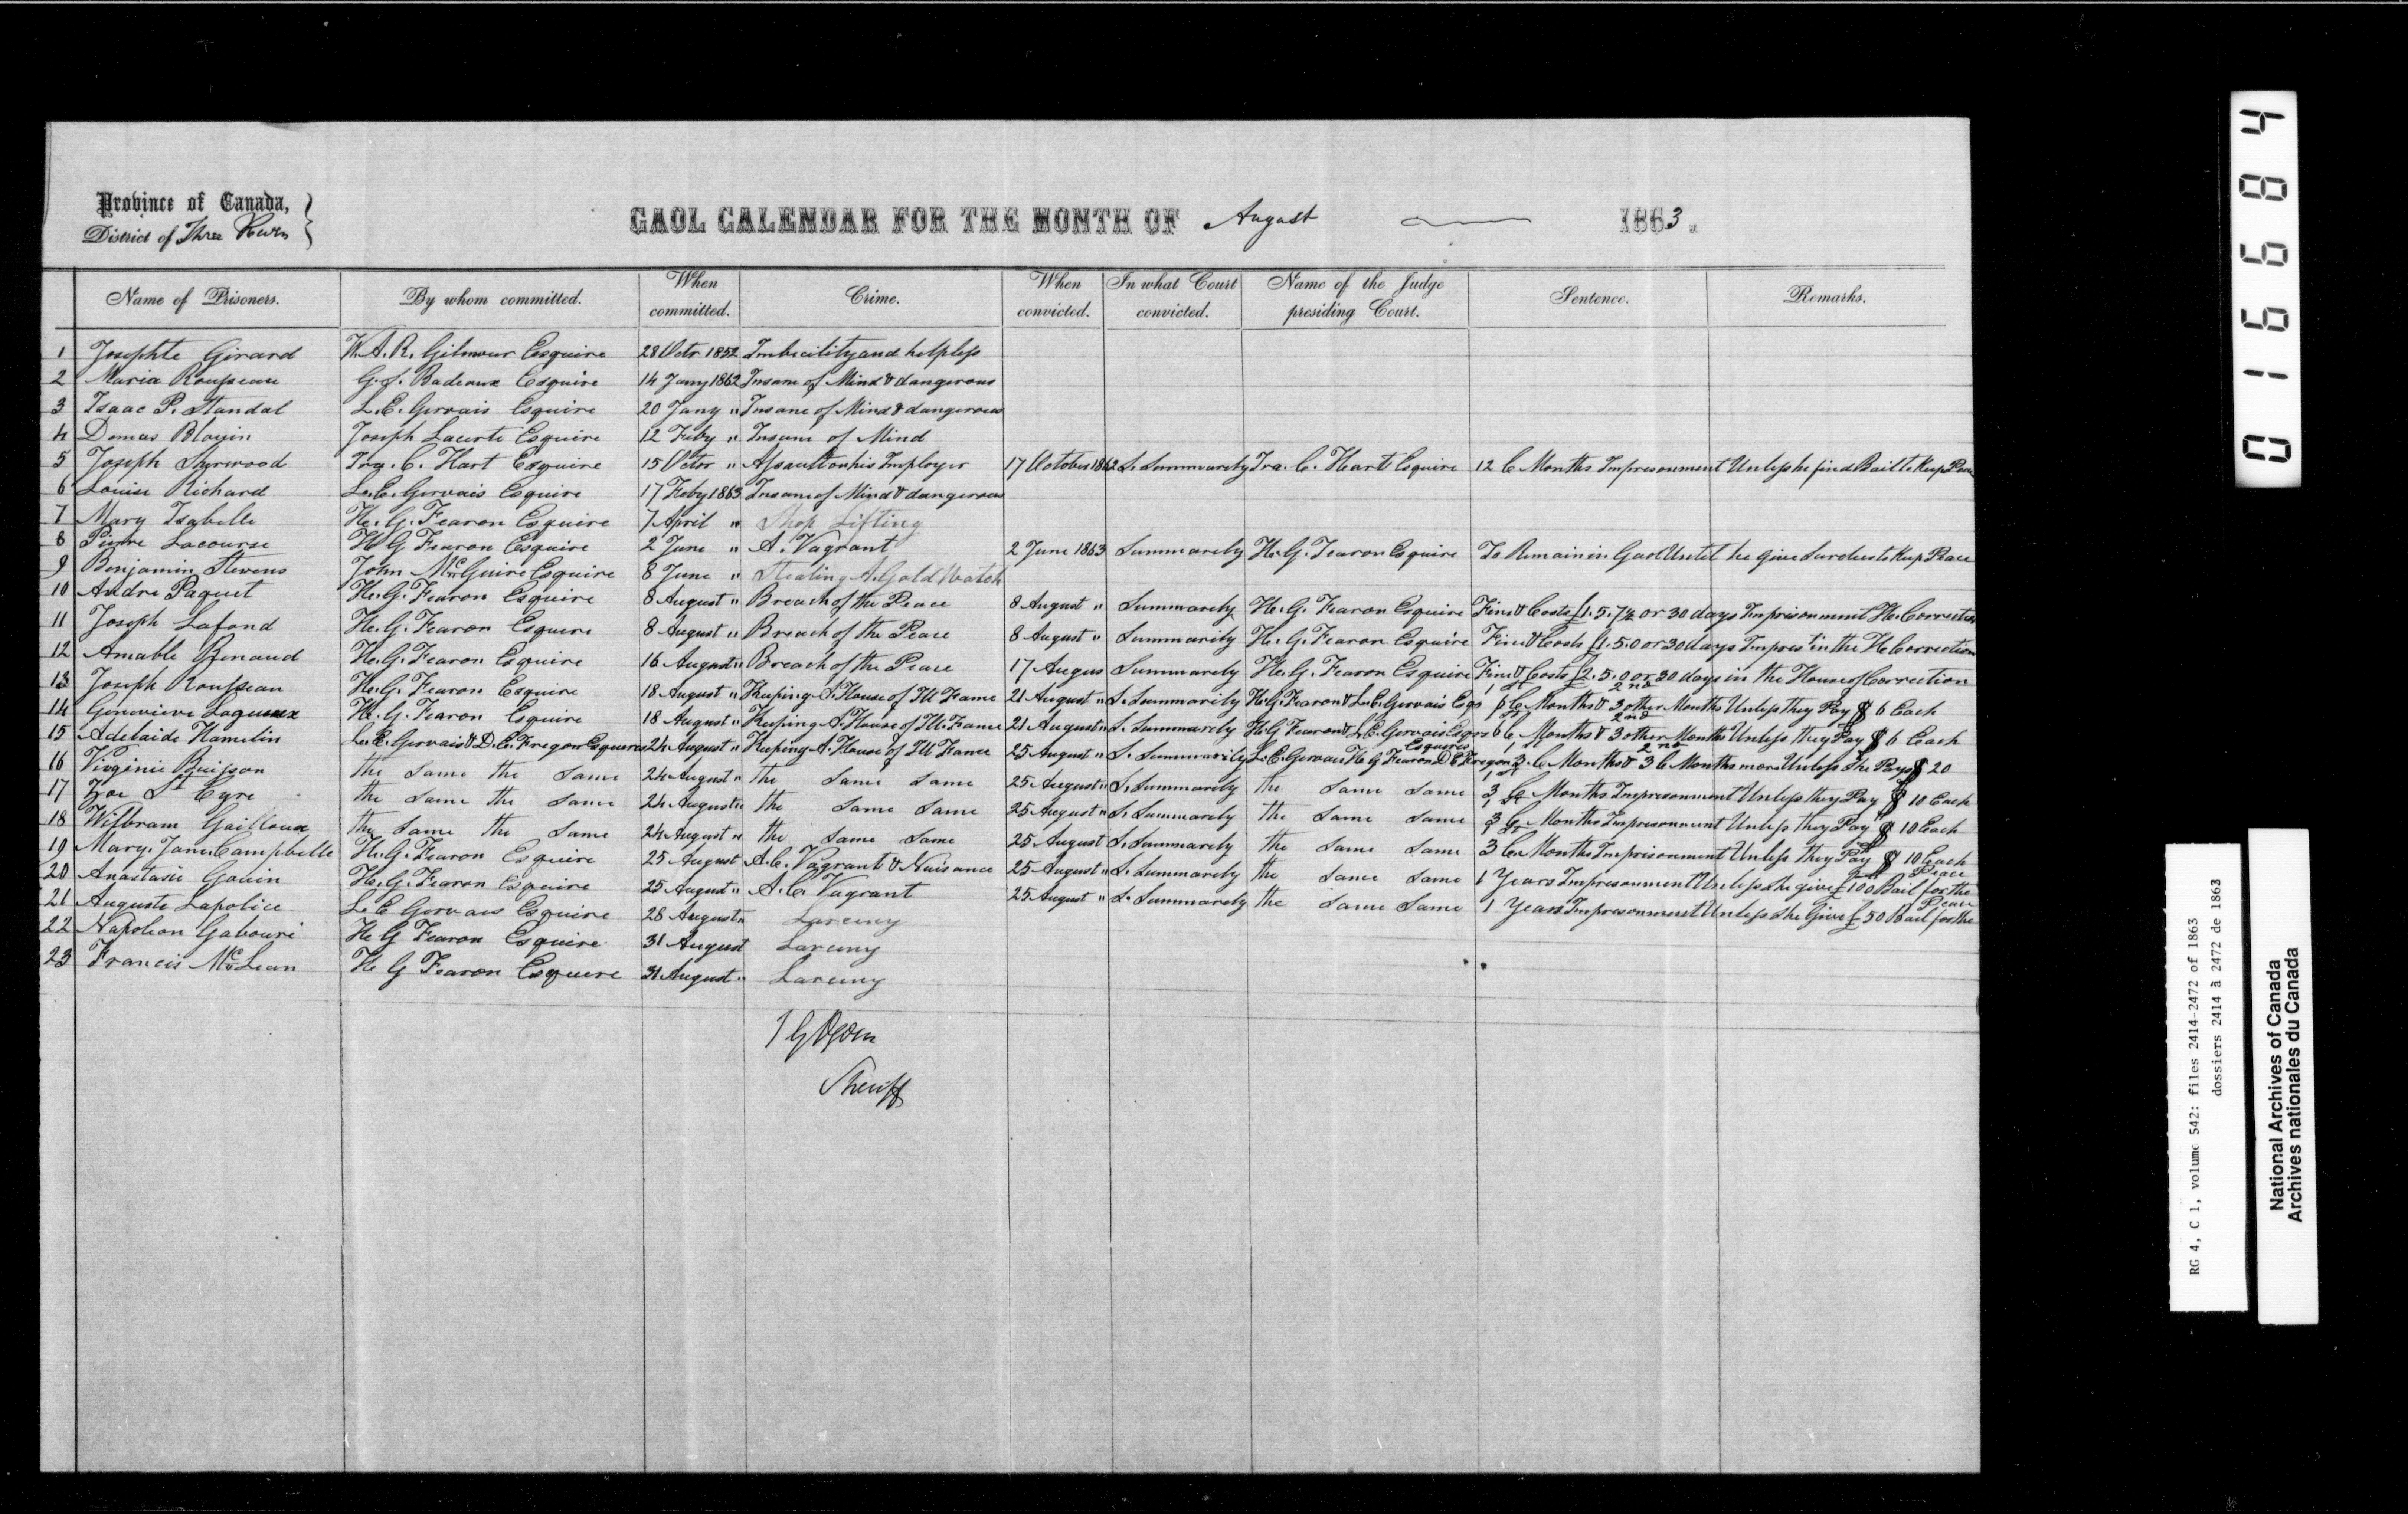 Province of Canada,
District of Three Rivers
GAOL CALENDAR FOR THE MONTH OF August 1863.
Name of Prisoners. By whom committed. When committed. Crime. When convicted. In what Court convicted. Name of the Judge presiding Court. Sentence. Remarks.
1 Josephte Girard W. A. R. Gilmour Esquire 28 Octr. 1852 Imbecility and helpless
2 Maria Rousseau G. S. Badeaux Esquire 14 Jany 1862 Insane of Mind & dangerous
3 Isaac P. Standal L. E. Gervais Esquire 20 Jany " Insane of Mind & dangerous
4 Damas Blouin Joseph Lacerte Esquire 12 Feby " Insane of Mind
5 Joseph Sherwood Ira. C. Hart Esquire 15 Octor " Assault on his Employer 17 October 1862 S. Summarily Ira. C. Hart Esquire 12 C Months Impresonment Unless he find Bail to Keep Peace
6 Louise Richard L. E. Gervais Esquire 17 Feby 1863 Insane of Mind & dangerous
7 Mary Isabelle H. G. Fearon Esquire 7 April " Shop Lifting
8 Pierre Lacourse H G Fearon Esquire 2 June " A. Vagrant 2 June 1863 Summarily H. G. Fearon Esquire To Remain in Gaol Until he give Surties to Keep Peace
9 Benjamin Stevens John McGuire Esquire 8 June " Stealing A. Gold Watch
10 Andre Paquet H. G. Fearon Esquire 8 August " Breach of the Peace 8 August " Summarily H. G. Fearon Esquire Fine & Costs £1. 5. 7½ or 30 days Imprisonment H. Correction
11 Joseph Lafond H. G. Fearon Esquire 8 August " Breach of the Peace 8 August " Summarily H. G. Fearon Esquire Fine & Costs £1. 5. 0 or 30 days Impres't in the H. Correction
12 Amable Renaud H. G. Fearon Esquire 16 August " Breach of the Peace 17 Augus Summarily H. G. Fearon Esquire Fine & Costs £2. 5. 0 or 30 days in the House of Correction
13 Joseph Rousseau H. G. Fearon Esquire 18 August " Keeping A. House of Ill Fame 21 August " S. Summarily H. G. Fearon & L. E. Gervais Esqs 1st 6 C Months & 2nd 3 other Months Unless they Pay $ 6 Each
14 Genevieve H. G. Fearon Esquire 18 August " Keeping A. House of Ill. Fame 21 August " S. Summarily H G Fearon & L. E. Gervais Esqrs 1st 6 C Months & 2nd 3 other Months Unless they Pay $ 6 Each
15 Adelaide Hamelin L. E. Gervais & D. E. Fregon Esqueres 24 August " Keeping A. House of Ill Fame 25 August " S. Summarily L. E. Gervais H. G Fearon D E Fregon Esqueres 1st 3. C Months & 2nd 3 C Months more Unless She Pays $ 20
16 Virginie Buisson the Same the Same 24 August " the Same Same 25 August " S. Summarily the Same Same 1st 3 C Months Impresonment Unless they Pay $ 10 Each
17 Zoe St Cyre the Same the Same 24 August " the Same Same 25 August " S. Summarily the Same Same 1st 3 C Months Impresonment Unless they Pay $ 10 Each
18 Wilbram Gailloux the Same the Same 24 August " the Same Same 25 August S. Summarily the Same Same 3 C Months Imprisonment Unless they Pay $ 10 Each
19 Mary. Jane. Campbelle H. G. Fearon Esquire 25 August A. C. Vagrant & Nuisance 25 August " S. Summarily the Same Same 1 Years Impresonment Unless she give £100 Bail for the Peace
20 Anastasie Gouin H. G. Fearon Esquire 25 August " A. C. Vagrant 25 August " S. Summarily the Same Same 1 Years Impresonment Unless She Give £50 Bail for the Peace
21 Auguste Lapolice L E Gervais Esquire 28 August " Larceny
22 Napoleon Gabouri H G Fearon Esquire 31 August Larceny
23 Francis McLean H G Fearon Esquere 31 August " Larceny
Sheriff
016684
RG 4, C 1, volume 542: files 2414-2472 of 1863
dossiers 2414 à 2472 de 1863
National Archives of Canada
Archives nationales du Canada